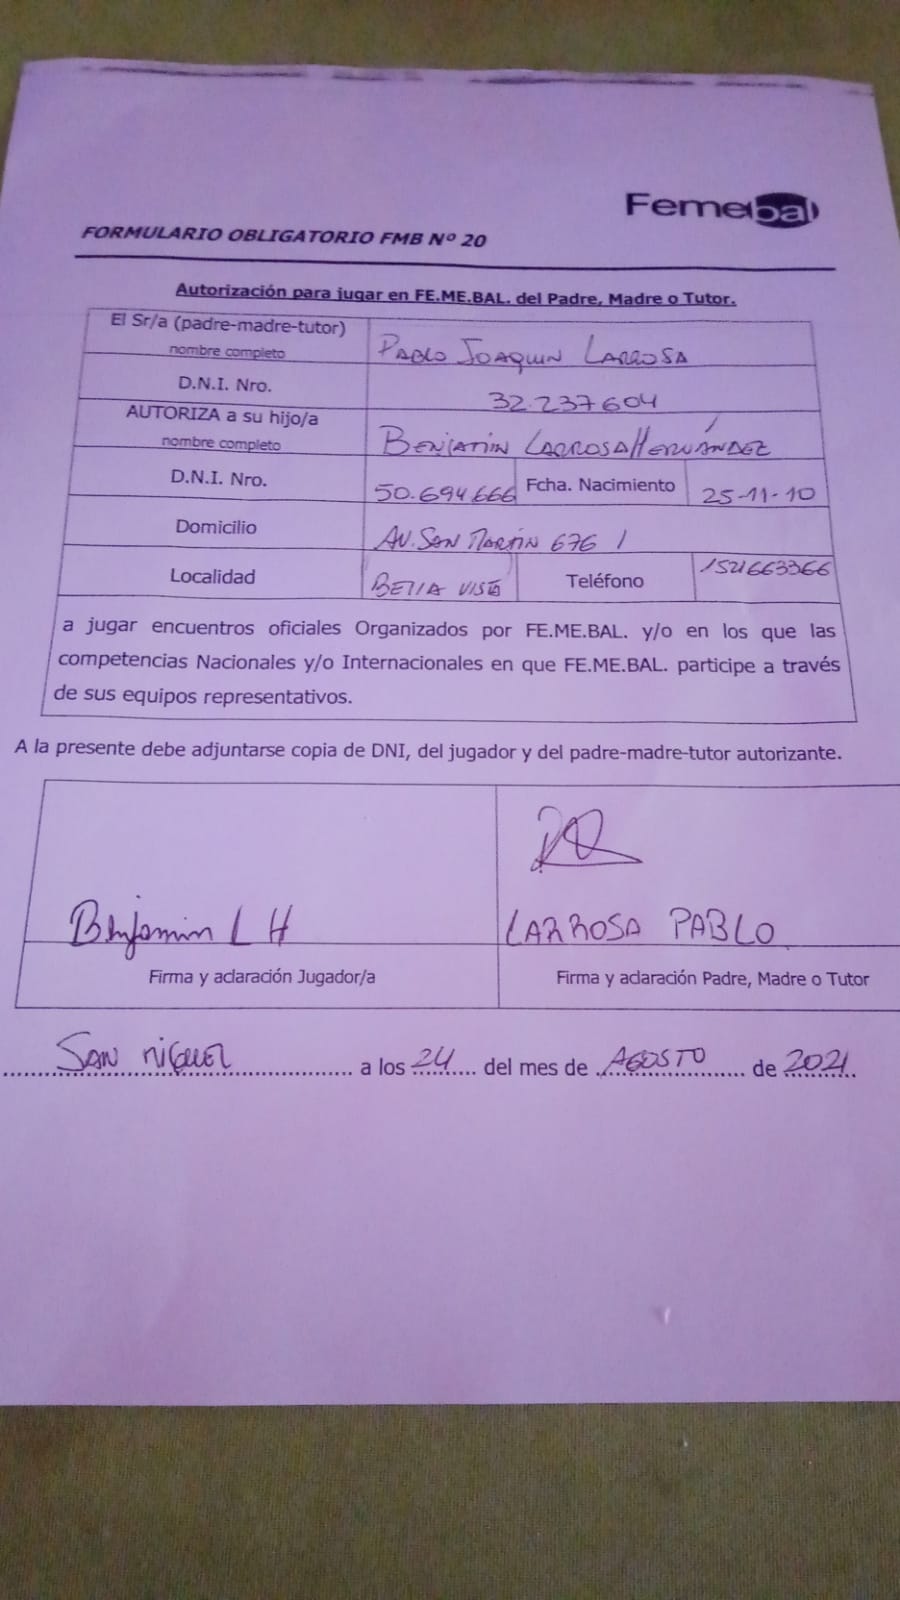 Femebal
FORMULARIO OBLIGATORIO FMB Nº 20
Autorización para jugar en FE.ME.BAL. del Padre, Madre o Tutor.
El Sr/a (padre-madre-tutor) nombre completo PABLO JOAQUIN LARROSA
D.N.I. Nro. 32.237604
AUTORIZA a su hijo/a nombre completo BENJAMIN LARROSA HERNÁNDEZ
D.N.I. Nro. 50.694.666 Fcha. Nacimiento 25-11-10
Domicilio AV. SAN MARTIN 676
Localidad BELLA VISTA Teléfono
a jugar encuentros oficiales Organizados por FE.ME.BAL. y/o en los que las
competencias Nacionales y/o Internacionales en que FE.ME.BAL. participe a través
de sus equipos representativos.
A la presente debe adjuntarse copia de DNI, del jugador y del padre-madre-tutor autorizante.
Benjamin L H LARROSA PABLO
Firma y aclaración Jugador/a Firma y aclaración Padre, Madre o Tutor
SAN MIGUEL a los 24 del mes de AGOSTO de 2021